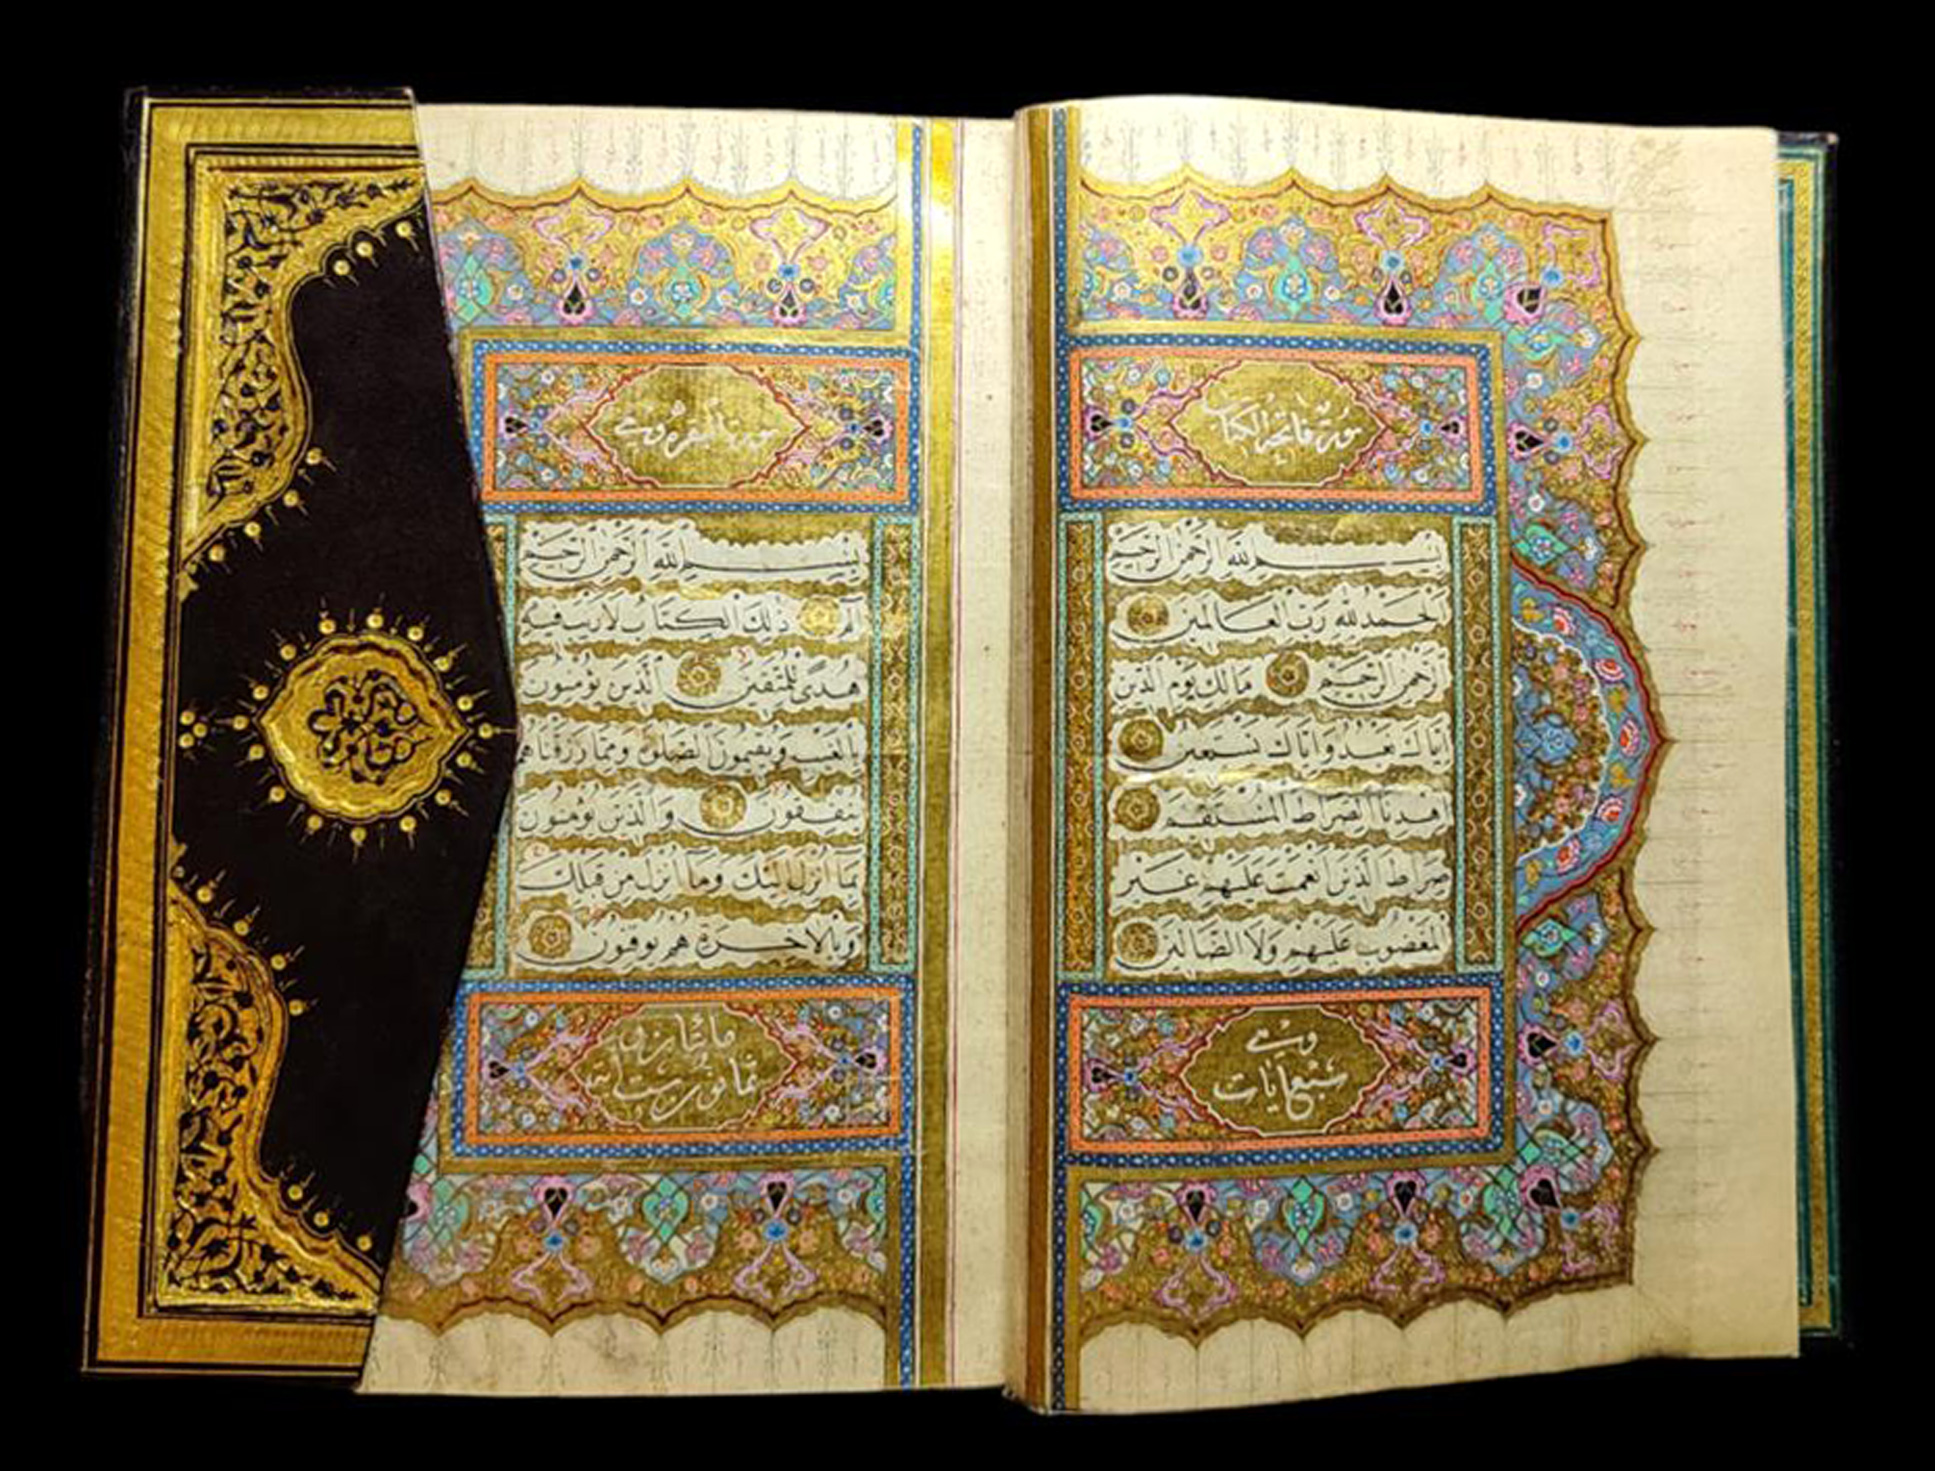 سُورَةُ فَاتِحَةِ الْكِتَابِ
بِسْمِ اللهِ الرَّحْمٰنِ الرَّحِيمِ
اَلْحَمْدُ لِلّٰهِ رَبِّ الْعَالَمِينَ
اَلرَّحْمٰنِ الرَّحِيمِ مَالِكِ يَوْمِ الدِّينِ
اِيَّاكَ نَعْبُدُ وَاِيَّاكَ نَسْتَعِينُ
اِهْدِنَا الصِّرَاطَ الْمُسْتَقِيمَ
صِرَاطَ الَّذِينَ اَنْعَمْتَ عَلَيْهِمْ غَيْرِ
الْمَغْضُوبِ عَلَيْهِمْ وَلَا الضَّالِّينَ
وَهِيَ
سَبْعُ اٰيَاتٍ
سُورَةُ الْبَقَرَةِ وَهِيَ
بِسْمِ اللهِ الرَّحْمٰنِ الرَّحِيمِ
الٓمٓ ذٰلِكَ الْكِتَابُ لَا رَيْبَ فِيهِ
هُدًى لِلْمُتَّقِينَ اَلَّذِينَ يُؤْمِنُونَ
بِالْغَيْبِ وَيُقِيمُونَ الصَّلٰوةَ وَمِمَّا رَزَقْنَاهُمْ
يُنْفِقُونَ وَالَّذِينَ يُؤْمِنُونَ
بِمَا اُنْزِلَ اِلَيْكَ وَمَا اُنْزِلَ مِنْ قَبْلِكَ
وَبِالْاٰخِرَةِ هُمْ يُوقِنُونَ
مائتان و
ثمانون وست آية